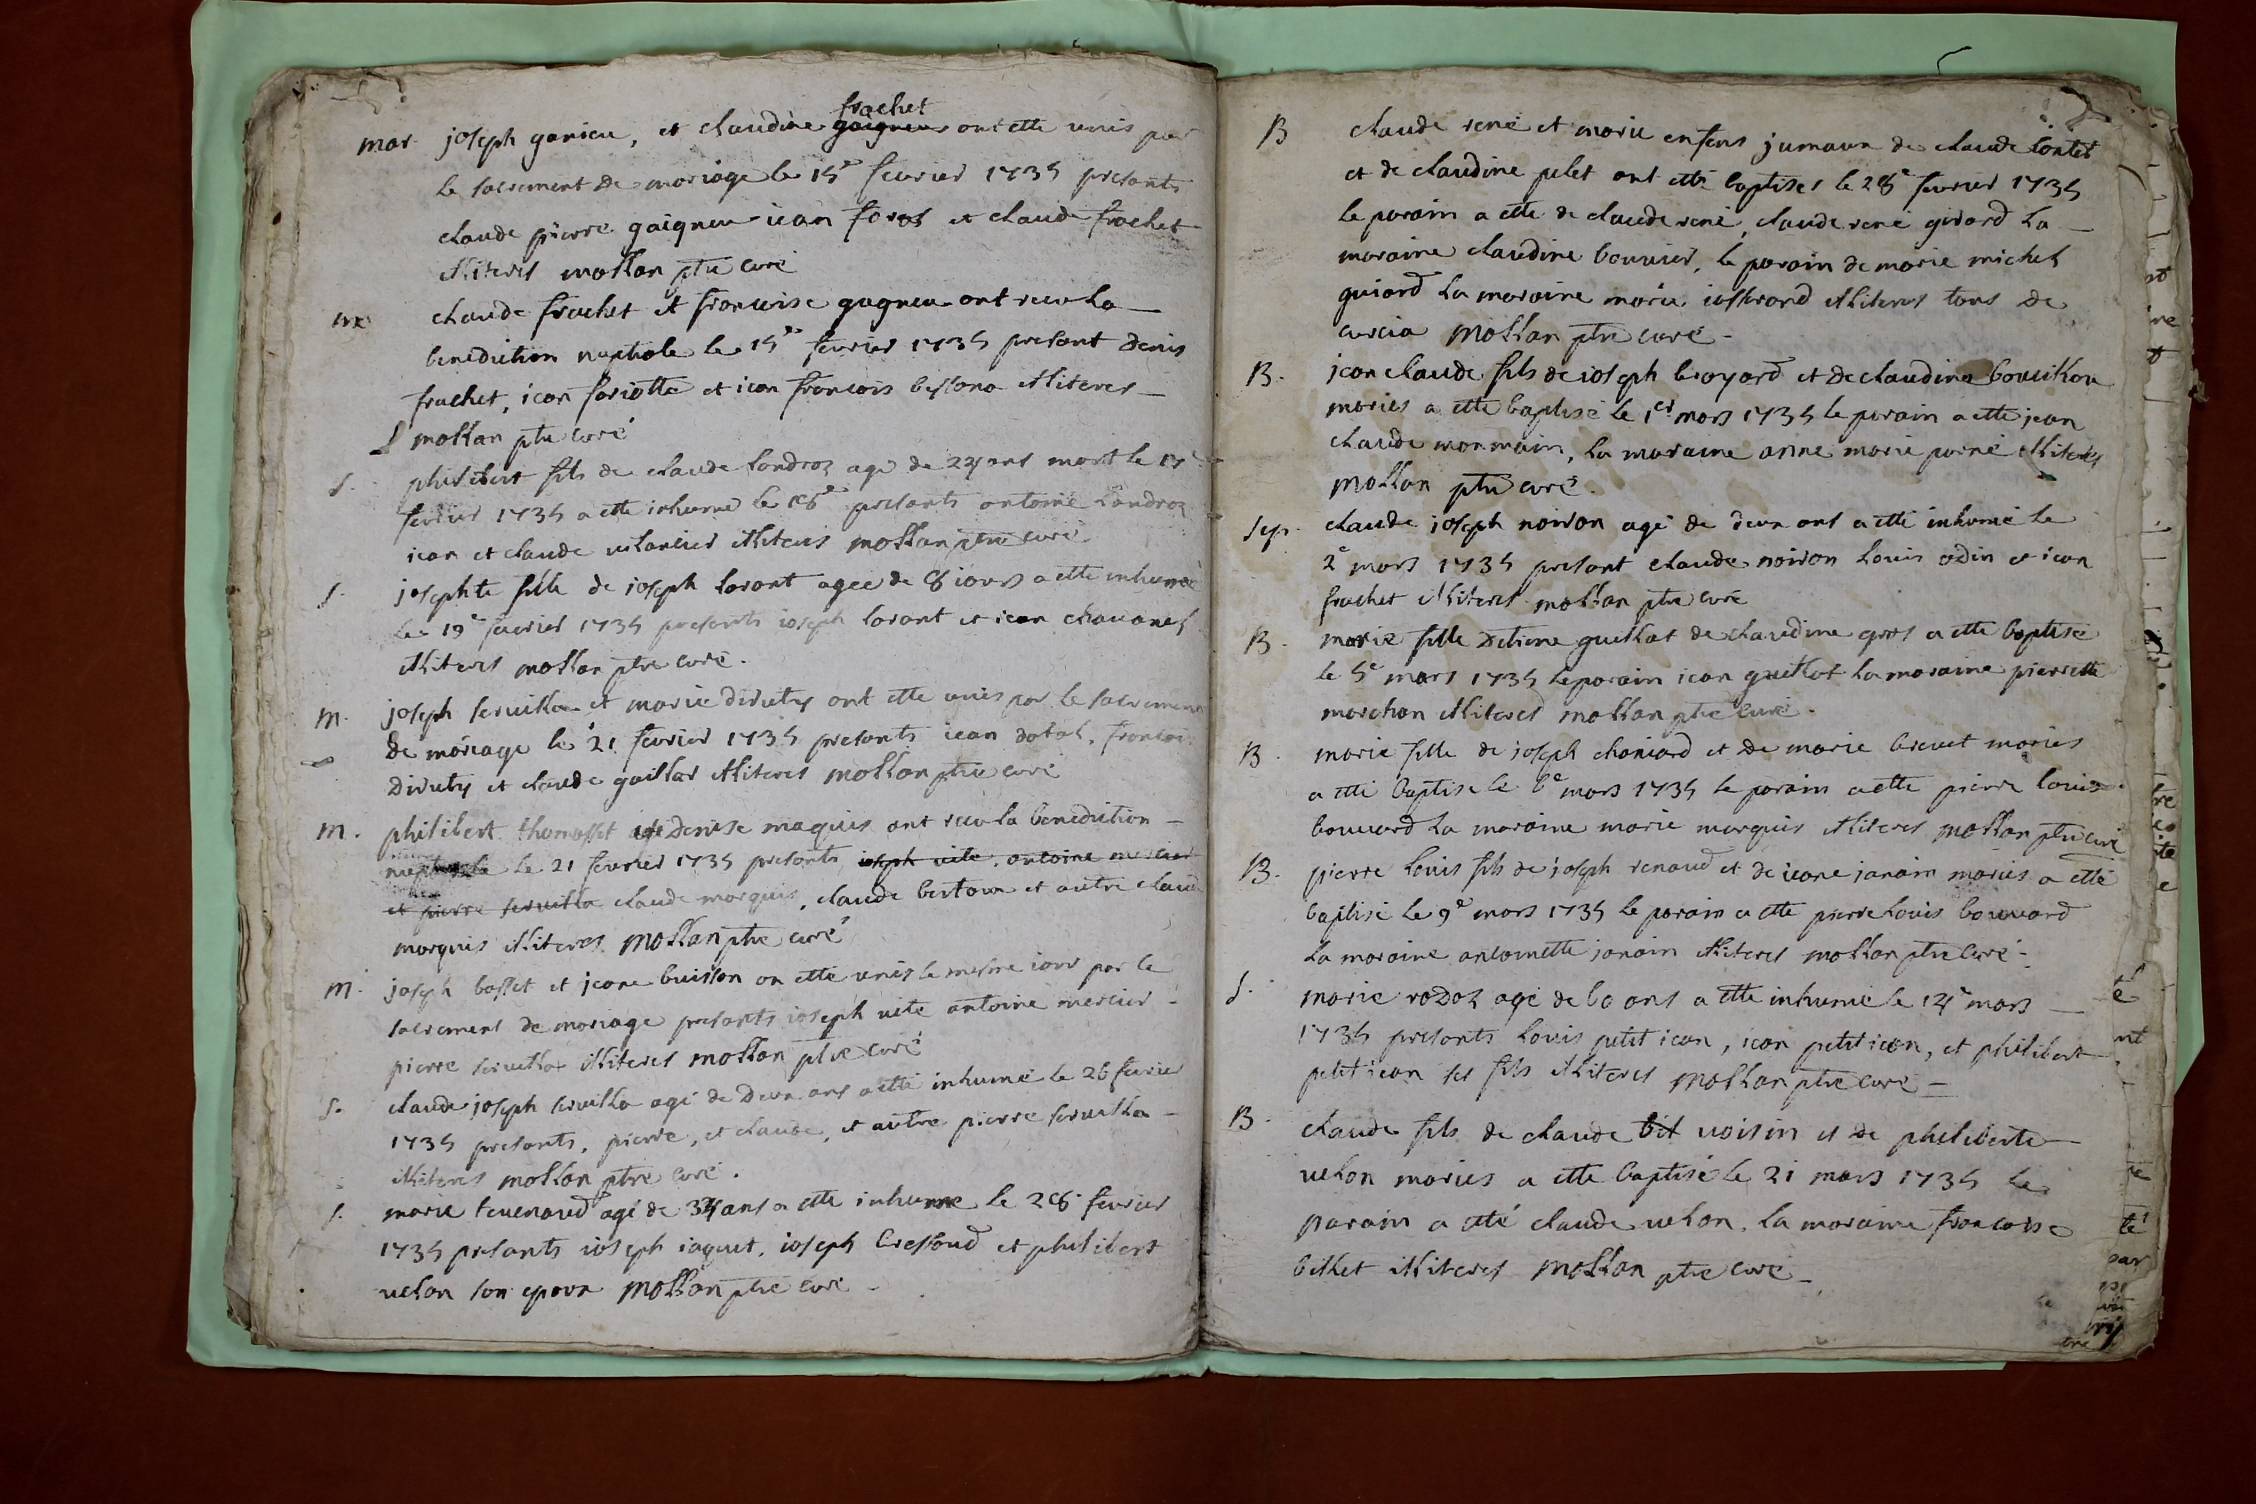 mar joseph ganieu, et claudine frachet gaigneu ont ette unis par
le sacrement de mariage le 15e feurier 1735 presants
claude pierre gaigneu iean foral et claude frachet
illiteres mollan ptre curé
m claude frachet et francoise gagneu ont receu la
benediction nuptiale le 15e feurier 1735 presant denis
frachet, iean foriotte et iean francois bessona illiteres
mollan ptre curé
S. philibert fils de claude landroz age de 24 ans mort le
feurier 1735 a ette inhume le 18e presants antoine landroz
iean et claude illiteres mollan ptre curé
S. josephte fille de joseph lorant agee de 8 iours a ette inhumeé
le 19e feurier 1735 presants ioseph lorant et iean chauanel
illiteres mollan ptre curé.
M. joseph seruilla et marie diruty ont ette unis par le sacrement
de mariage le 21 feurier 1735 presants iean dotal, francois
diruty et claude gaillar illiteres mollan ptre curé
M. philibert thomasset et denise maquis ont receu la benediction
nuptiale le 21 feurier 1735 presants ioseph uite, antoine mercier
et pierre seruilla claude marquis, claude bertoux et autre claude
marquis illiteres mollan ptre curé
M. joseph basset et jeane buisson on etté unis le mesme iour par le
sacrement de mariage presants ioseph uite antoine mercier
pierre seruilla illiteres mollan ptre curé
S. claude joseph seruilla agé de deux ans a etté inhumé le 26 feurier
1735 presants, pierre, et claude, et autre pierre seruilla
illiteres mollan ptre curé.
S. marie teuenaud agé de 34 ans a ette inhume le 28 feurier
1735 presants ioseph iaquet, ioseph bressoud et philibert
uelon son epoux mollan ptre curé
B claude rené et marie enfens jumaux de claude contet
et de claudine pelet ont etté baptises le 28e feurier 1735
le parain a ette de claude rené, claude rené girard la
maraine claudine bouuier, le parain de marie michel
guiard la maraine marie iosserand illiteres tous de
curcia mollan ptre curé
B. jean claude fils de ioseph broyard et de claudine bouillou
mariés a ette baptisé le 1er mars 1735 le parain a ette jean
claude monmain, la maraine anne marie parné illiteres
mollan ptre curé.
Sep. claude ioseph noiron agé de deux ans a etté inhumé le
2e mars 1735 presant claude noiron louis odin et iean
frachet illiteres mollan ptre curé
B. marie fille detiene guillot de claudine gros a ette baptise
le 5e mars 1735 le parain iean guillot la maraine pierrette
marchan illiteres mollan ptre curé.
B. marie fille de joseph chaniard et de marie breuet mariés
a etté baptise le 6e mars 1735 le parain a ette pierre louis
bouuard la maraine marie marquis illiteres mollan ptre curé
B. pierre louis fils de joseph renaud et de ieane janain mariés a etté
baptisé le 9e mars 1735 le parain a ette pierre louis bouuard
la maraine antoinette janain illiteres mollan ptre curé
S. marie rodoz agé de 60 ans a ette inhumé le 14e mars
1735 presants louis petit iean, iean petit iean, et philibert
petit iean ses fils illiteres mollan ptre curé
B. claude fils de claude bit uoisin et de philiberte
uelon mariés a ette baptisé le 21 mars 1735 le
parain a etté claude uelon, la maraine francoise
billet illiteres mollan ptre curé